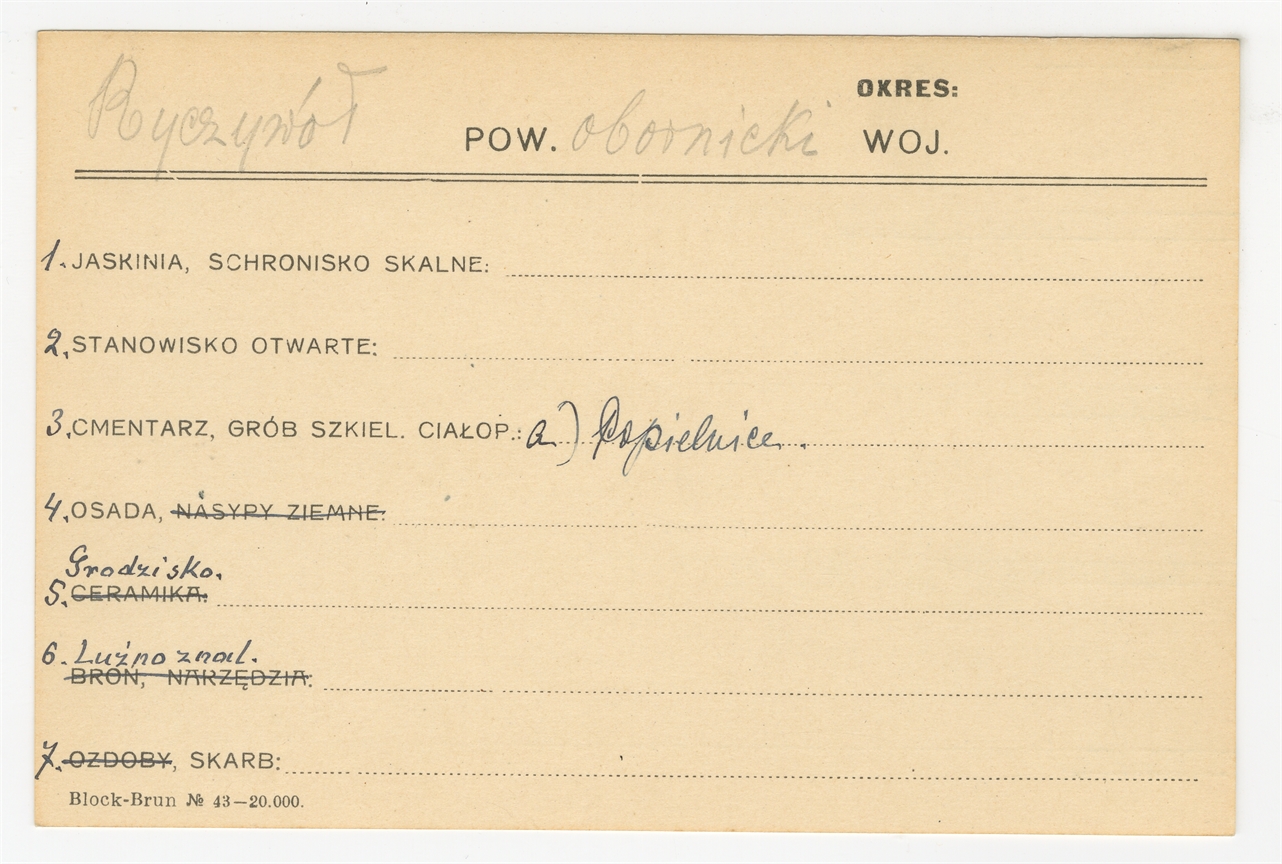 OKRES:
Ryczywół POW. obornicki WOJ.
1. JASKINIA, SCHRONISKO SKALNE:
2. STANOWISKO OTWARTE:
3. CMENTARZ, GRÓB SZKIEL. CIAŁOP.: a) Popielnice.
4. OSADA, NASYPY ZIEMNE:
Grodzisko.
5. CERAMIKA:
6. Luźno znal.
BROŃ, NARZĘDZIA:
7. OZDOBY, SKARB:
Block-Brun № 43—20.000.